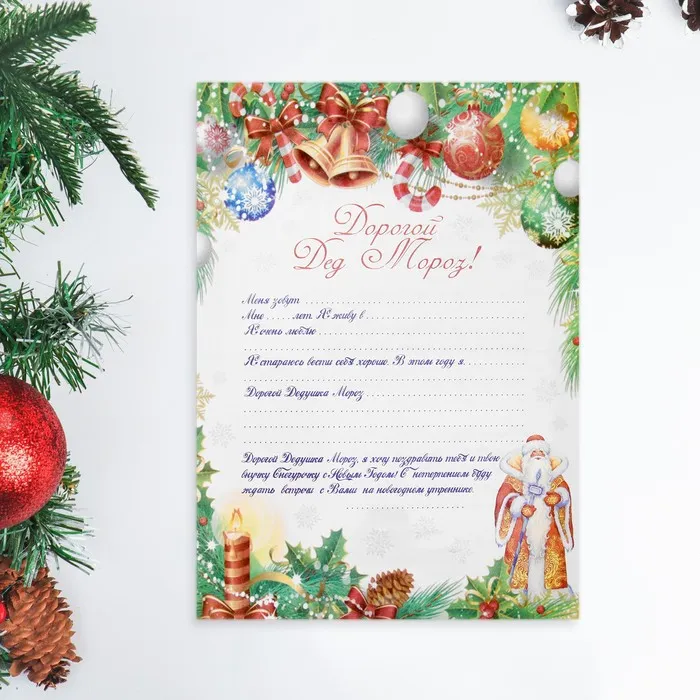 Дорогой
Дед Мороз!
Меня зовут ........................................
Мне ..... лет. Я живу в ..............................
Я очень люблю ........................................
........................................
Я стараюсь вести себя хорошо. В этом году я ............
........................................
Дорогой Дедушка Мороз ..............................
........................................
........................................
........................................
Дорогой Дедушка Мороз, я хочу поздравить тебя и твою
внучку Снегурочку с Новым Годом! С нетерпением буду
ждать встречи с Вами на новогоднем утреннике.
..............................